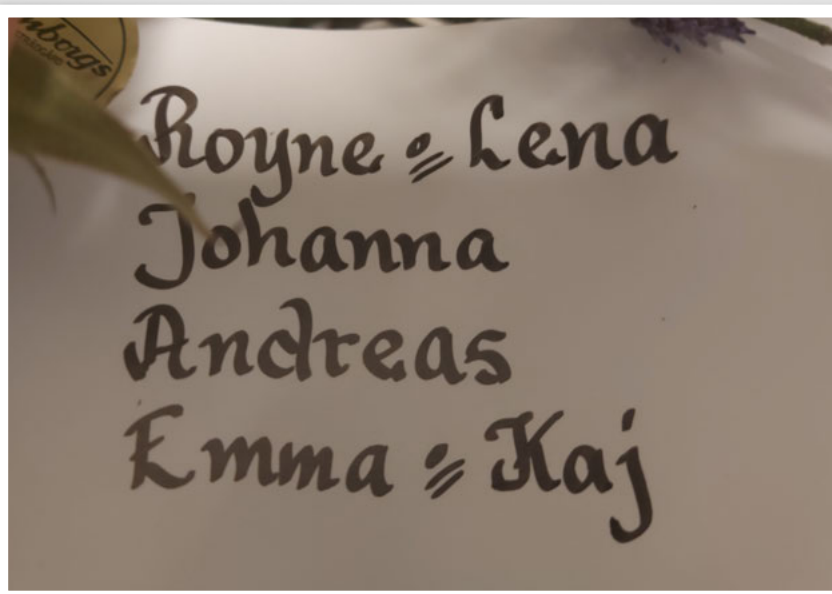 Royne & Lena
Johanna
Andreas
Emma & Kaj